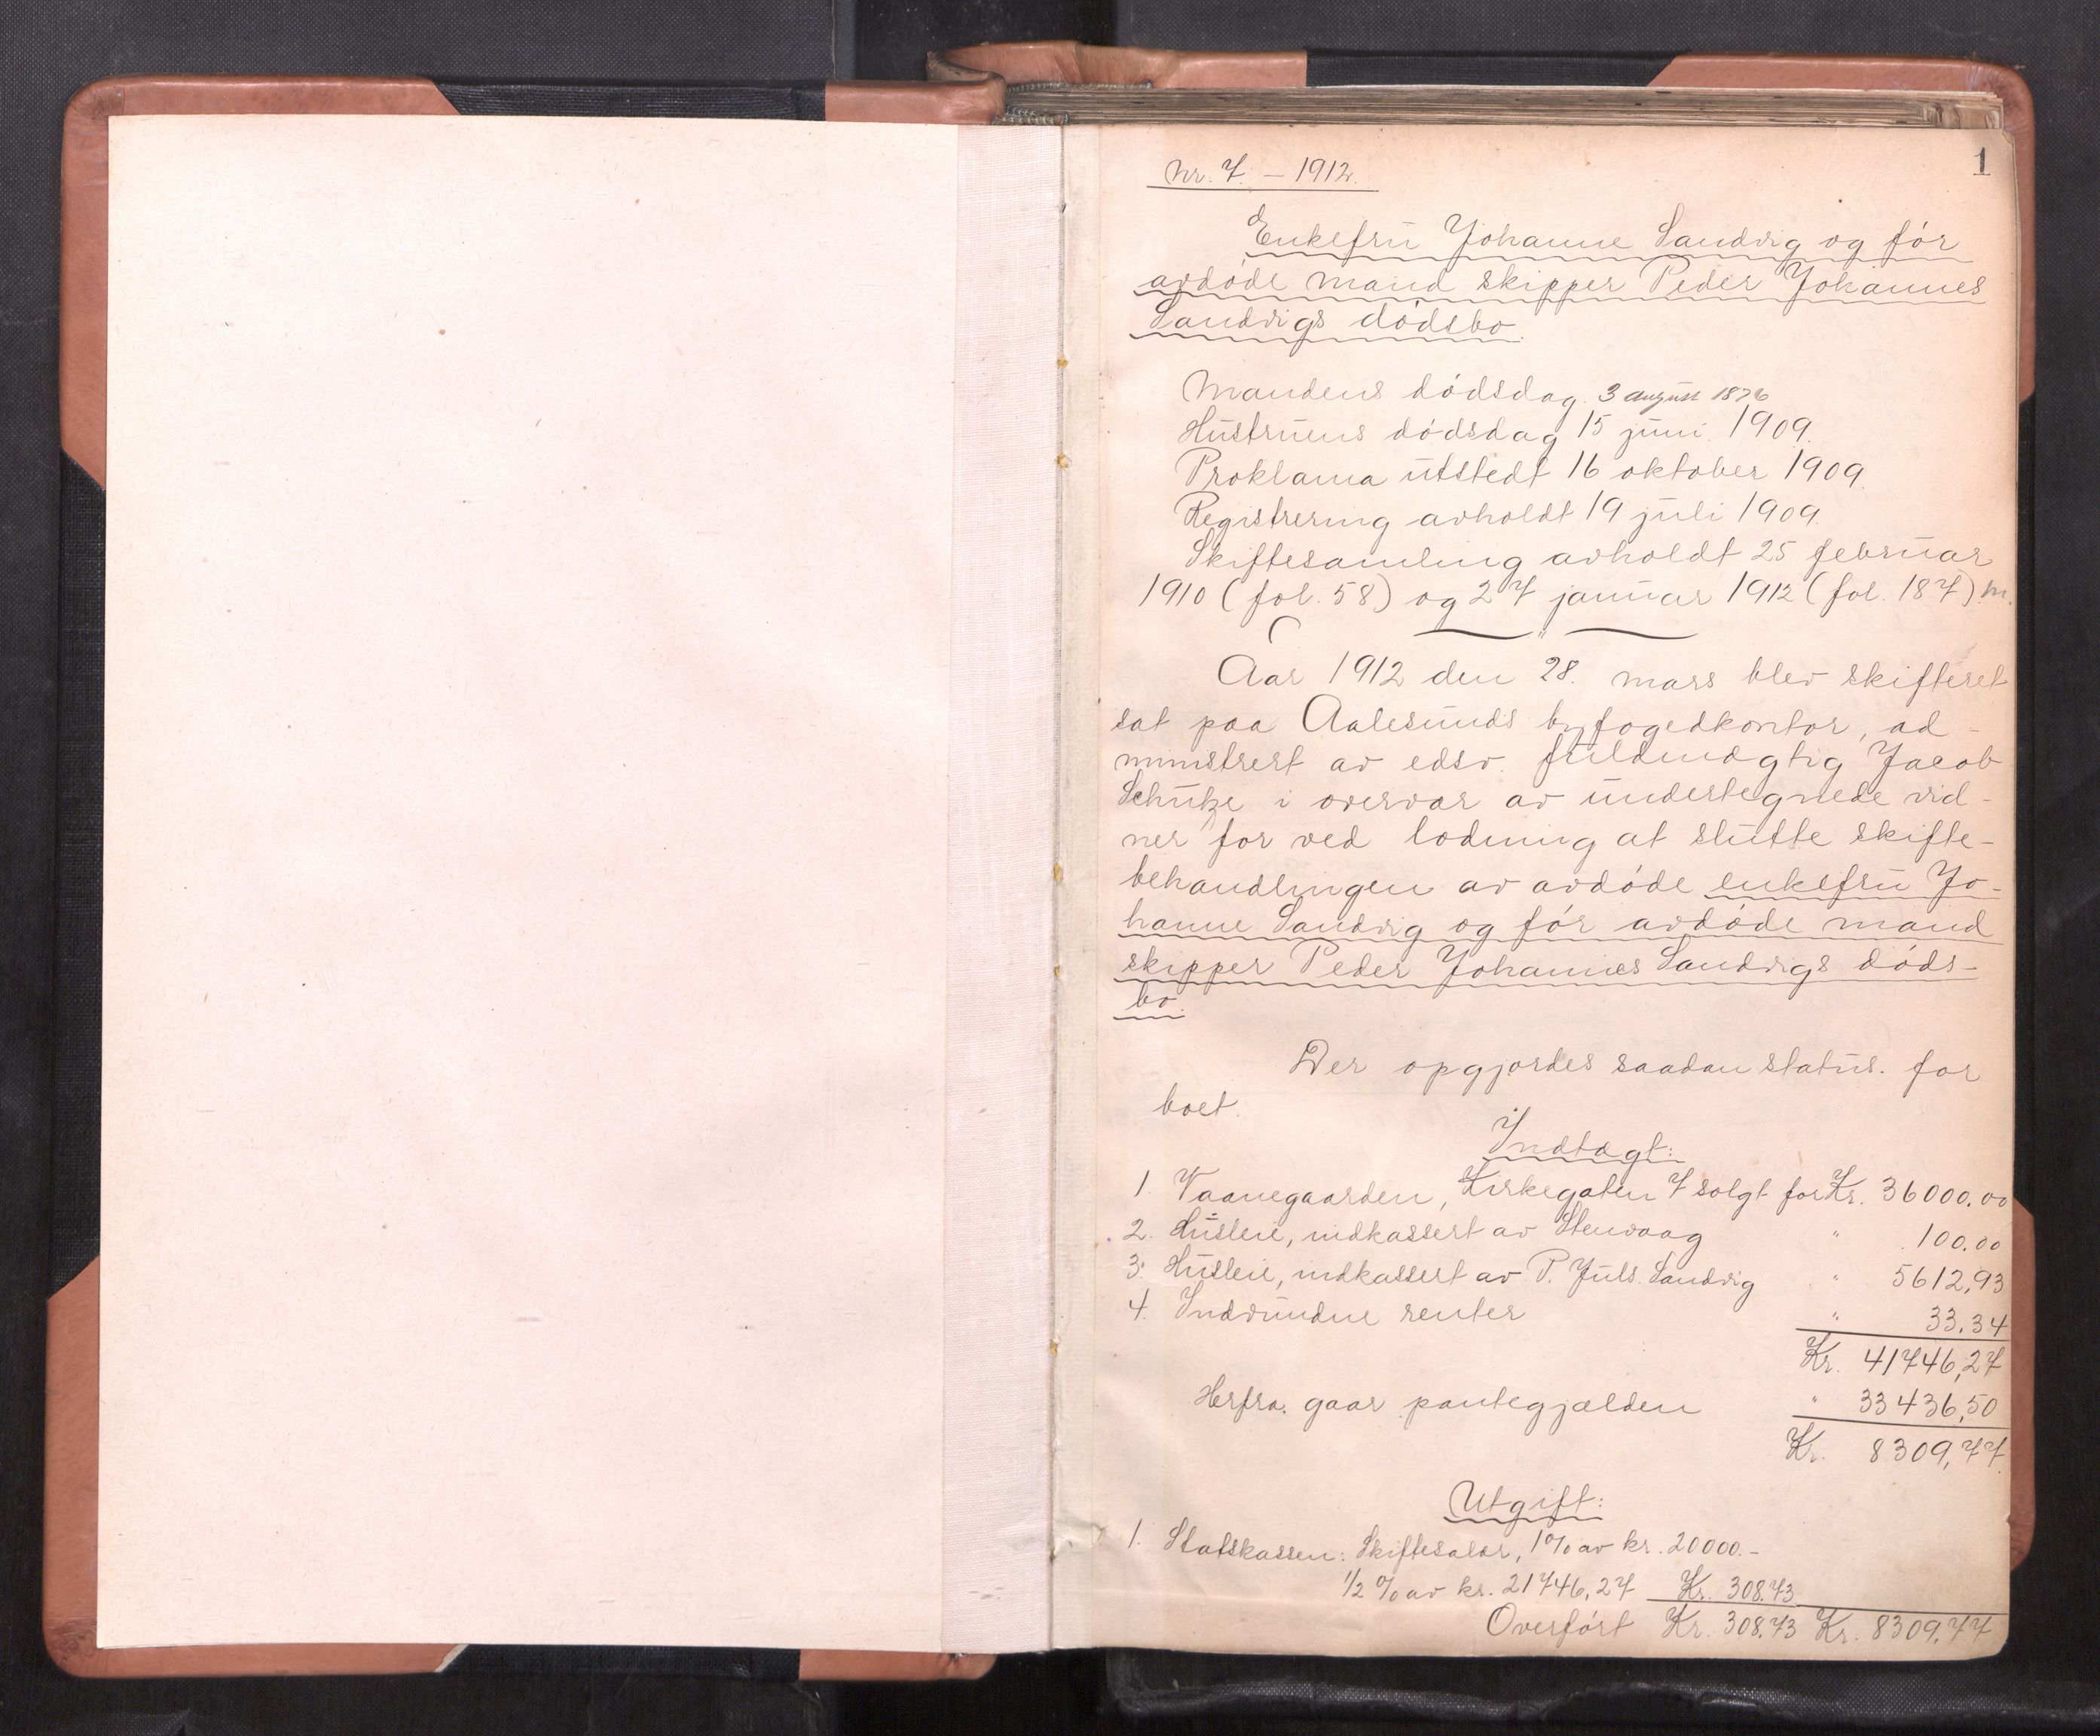 1
Nr. 7. – 1912.
Enkefru Johanne Sandvig og før
avdøde mand skipper Peder Johannes
Sandvigs dødsbo.
Mandens dødsdag 3 august 1876
Hustruens dødsdag 15 juni 1909.
Proklama utstedt 16 oktober 1909.
Registrering avholdt 19 juli 1909.
Skiftesamling avholdt 25 februar
1910 (fol. 58) og 27 januar 1912 (fol. 187). m.
Aar 1912 den 28. mars blev skifteret
sat paa Aalesunds byfogedkontor, ad-
ministrert av edsv. fuldmægtig Jacob
Schütze i overvær av undertegnede vid-
ner for ved lodning at slutte skifte-
behandlingen av avdøde enkefru Jo-
hanne Sandvig og før avdøde mand
skipper Peder Johannes Sandvigs døds-
bo.
Der opgjordes saadan status for
boet.
Indtægt:
1. Vaanegaarden, Kirkegaten 7 solgt for Kr. 36000.00
2. Husleie, indkassert av Stenvaag " 100.00
3. Husleie, indkassert av P. Juls. Sandvig " 5612,93
4. Indvundne renter " 33.34
Kr. 41746,27
Herfra gaar pantegjælden " 33436,50
Kr. 8309,77.
Utgift:
1. Statskassen: Skiftesalær, 1% av kr. 20000.-
1/2 % av kr. 21746,27 Kr. 308.73
Overført Kr. 308.73 Kr. 8309,77